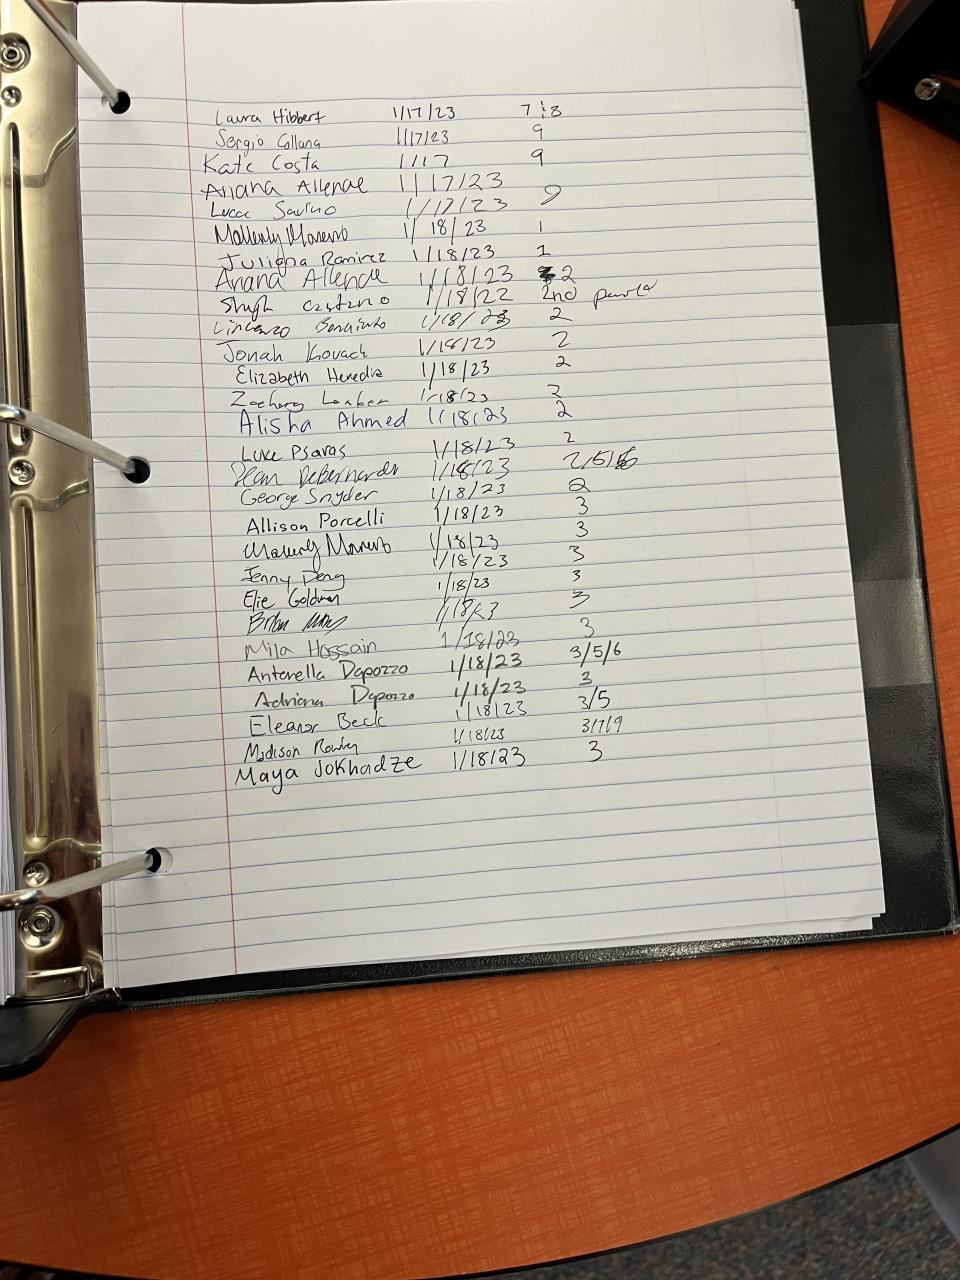 Laura Hibbert 1/17/23 7 & 8
Sergio 1/17/23 9
Kate Costa 1/17 9
Ariana Allende 1/17/23
Luca Savino 1/17/23 9
Mallerly Moreno 1/18/23 1
Juliana Ramirez 1/18/23 1
Ariana Allende 1/18/23 2
1/18/22 2nd
Vincenzo 1/18/23 2
Jonah Kovach 1/18/23 2
Elizabeth Heredia 1/18/23 2
Zachary 1/18/23 2
Alisha Ahmed 1/18/23 2
Luke Psaras 1/18/23 2
Dean DeBernardo 1/18/23 2/5/6
George Snyder 1/18/23 2
Allison Porcelli 1/18/23 3
Mallerly Moreno 1/18/23 3
Jenny Deng 1/18/23 3
Elie Goldman 1/18/23 3
Brian 1/18/23 3
Mila Hossain 1/18/23 3
Antonella Dapozzo 1/18/23 3/5/6
Adriana Dapozzo 1/18/23 3
Eleanor Beck 1/18/23 3/5
Madison 1/18/23 3/7/9
Maya Jokhadze 1/18/23 3